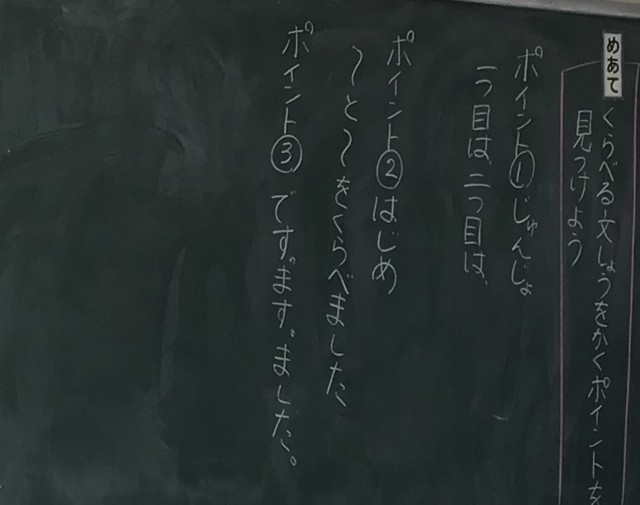 めあて
くらべる文しょうをかくポイントを
見つけよう
ポイント①じゅんじょ
一つ目は、二つ目は、
ポイント②はじめ
〜と〜をくらべました。
ポイント③です。ます。ました。